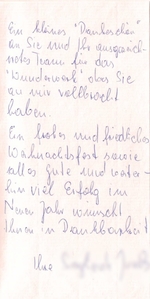 Ein kleines "Dankeschön"
an Sie und Ihr ausgezeich-
netes Team für das
"Wunderwerk" das Sie
an mir vollbracht
haben.
Ein frohes und friedliches
Weihnachtsfest sowie
alles gute und weiter-
hin viel Erfolg im
Neuen Jahr wünscht
Ihnen in Dankbarkeit
Ihre